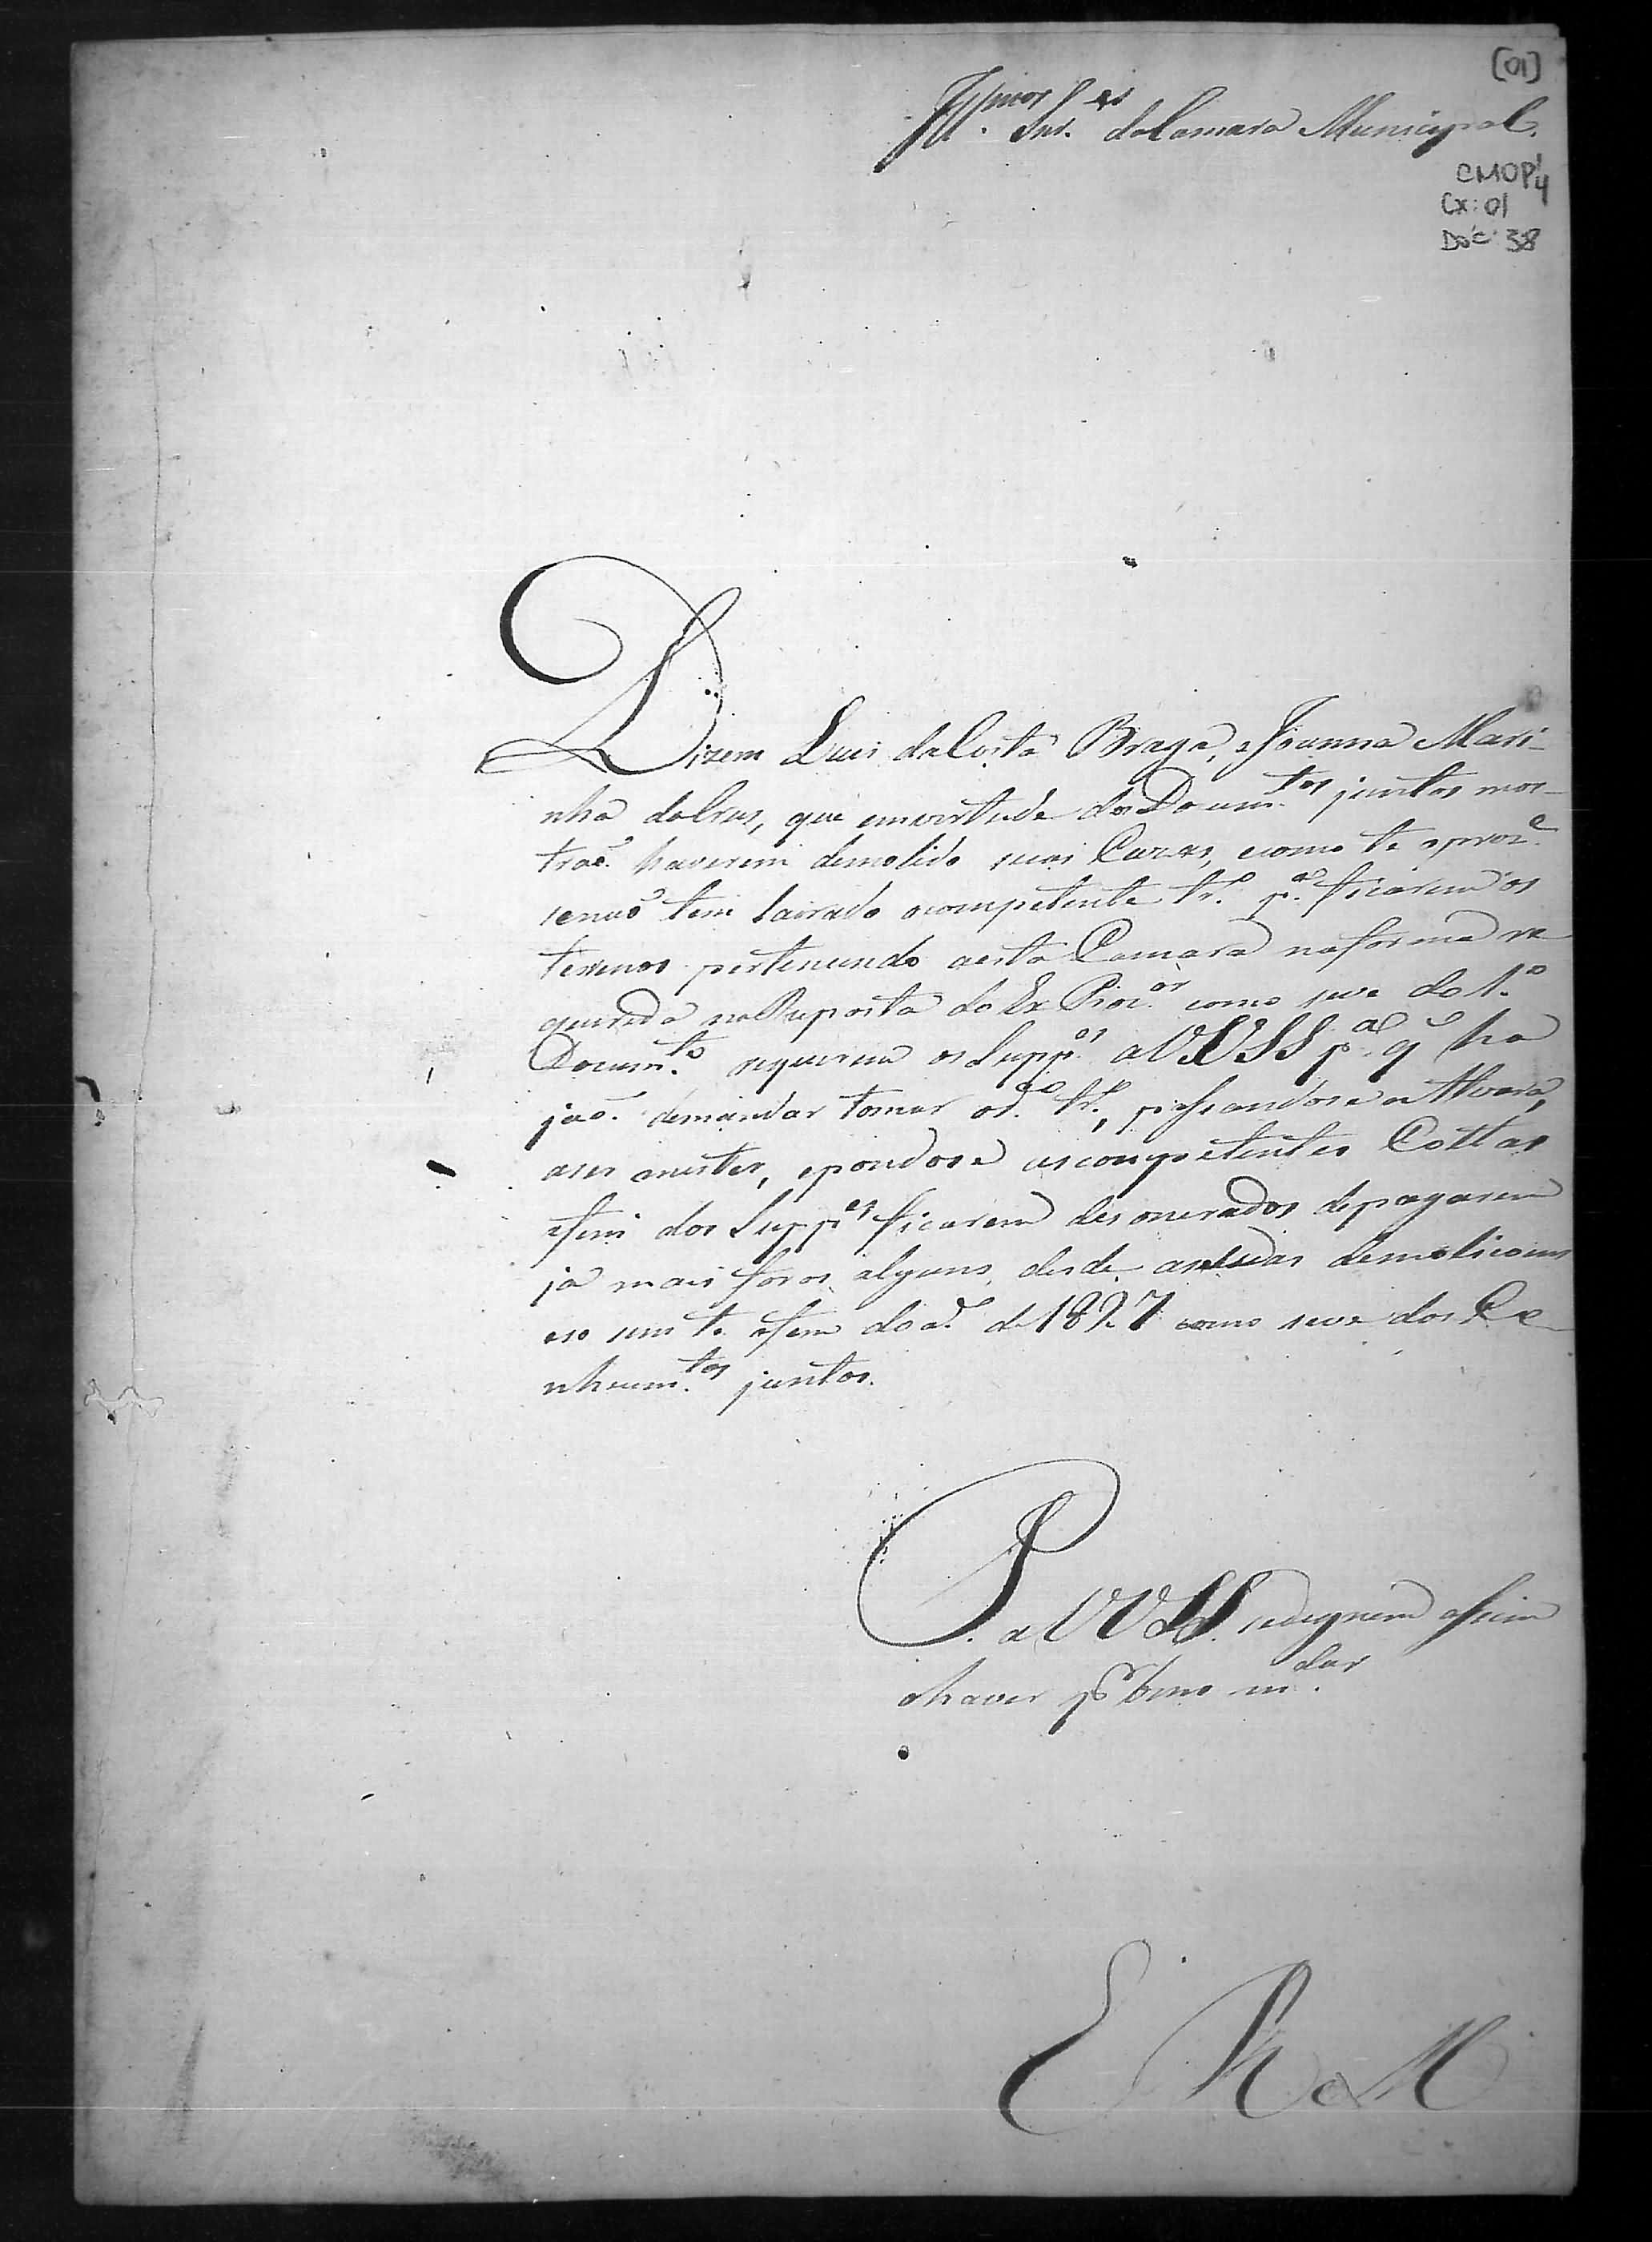 [01]
Illmos Snr.es da Camara Municipal.
CMOP 1/4
Cx: 01
Doc: 38
Dizem Luis da Costa Braga, e Joanna Mari-
nha da Crus, que em virtude dos Docum.tos juntos mos-
traõ. haverem demolido suas Cazas, e como te o prez.e
se naõ tem lavrado o competente tr.o p.a ficarem os
terrenos pertencendo a esta Camara na forma re
querida na Resposta do Ex Proc.or como se ve do 1.o
Docum.to requerem os Supp.es a VVSS p.a q̃ ha
jaõ. de mandar tomar o d.o tr.o, passandose o Alvará,
a ser mister, e pondose as competentes Cottas
afim dos Supp.es ficarem desonerados de pagarem
já mais foros alguns, desde as ditas demolicoens
e so sim te o fim do a. de 1827 como se ve dos Co
nhecim.tos juntos.
P. a VVSS. se dignem assim
o haver p.r bem m.dar
E R M